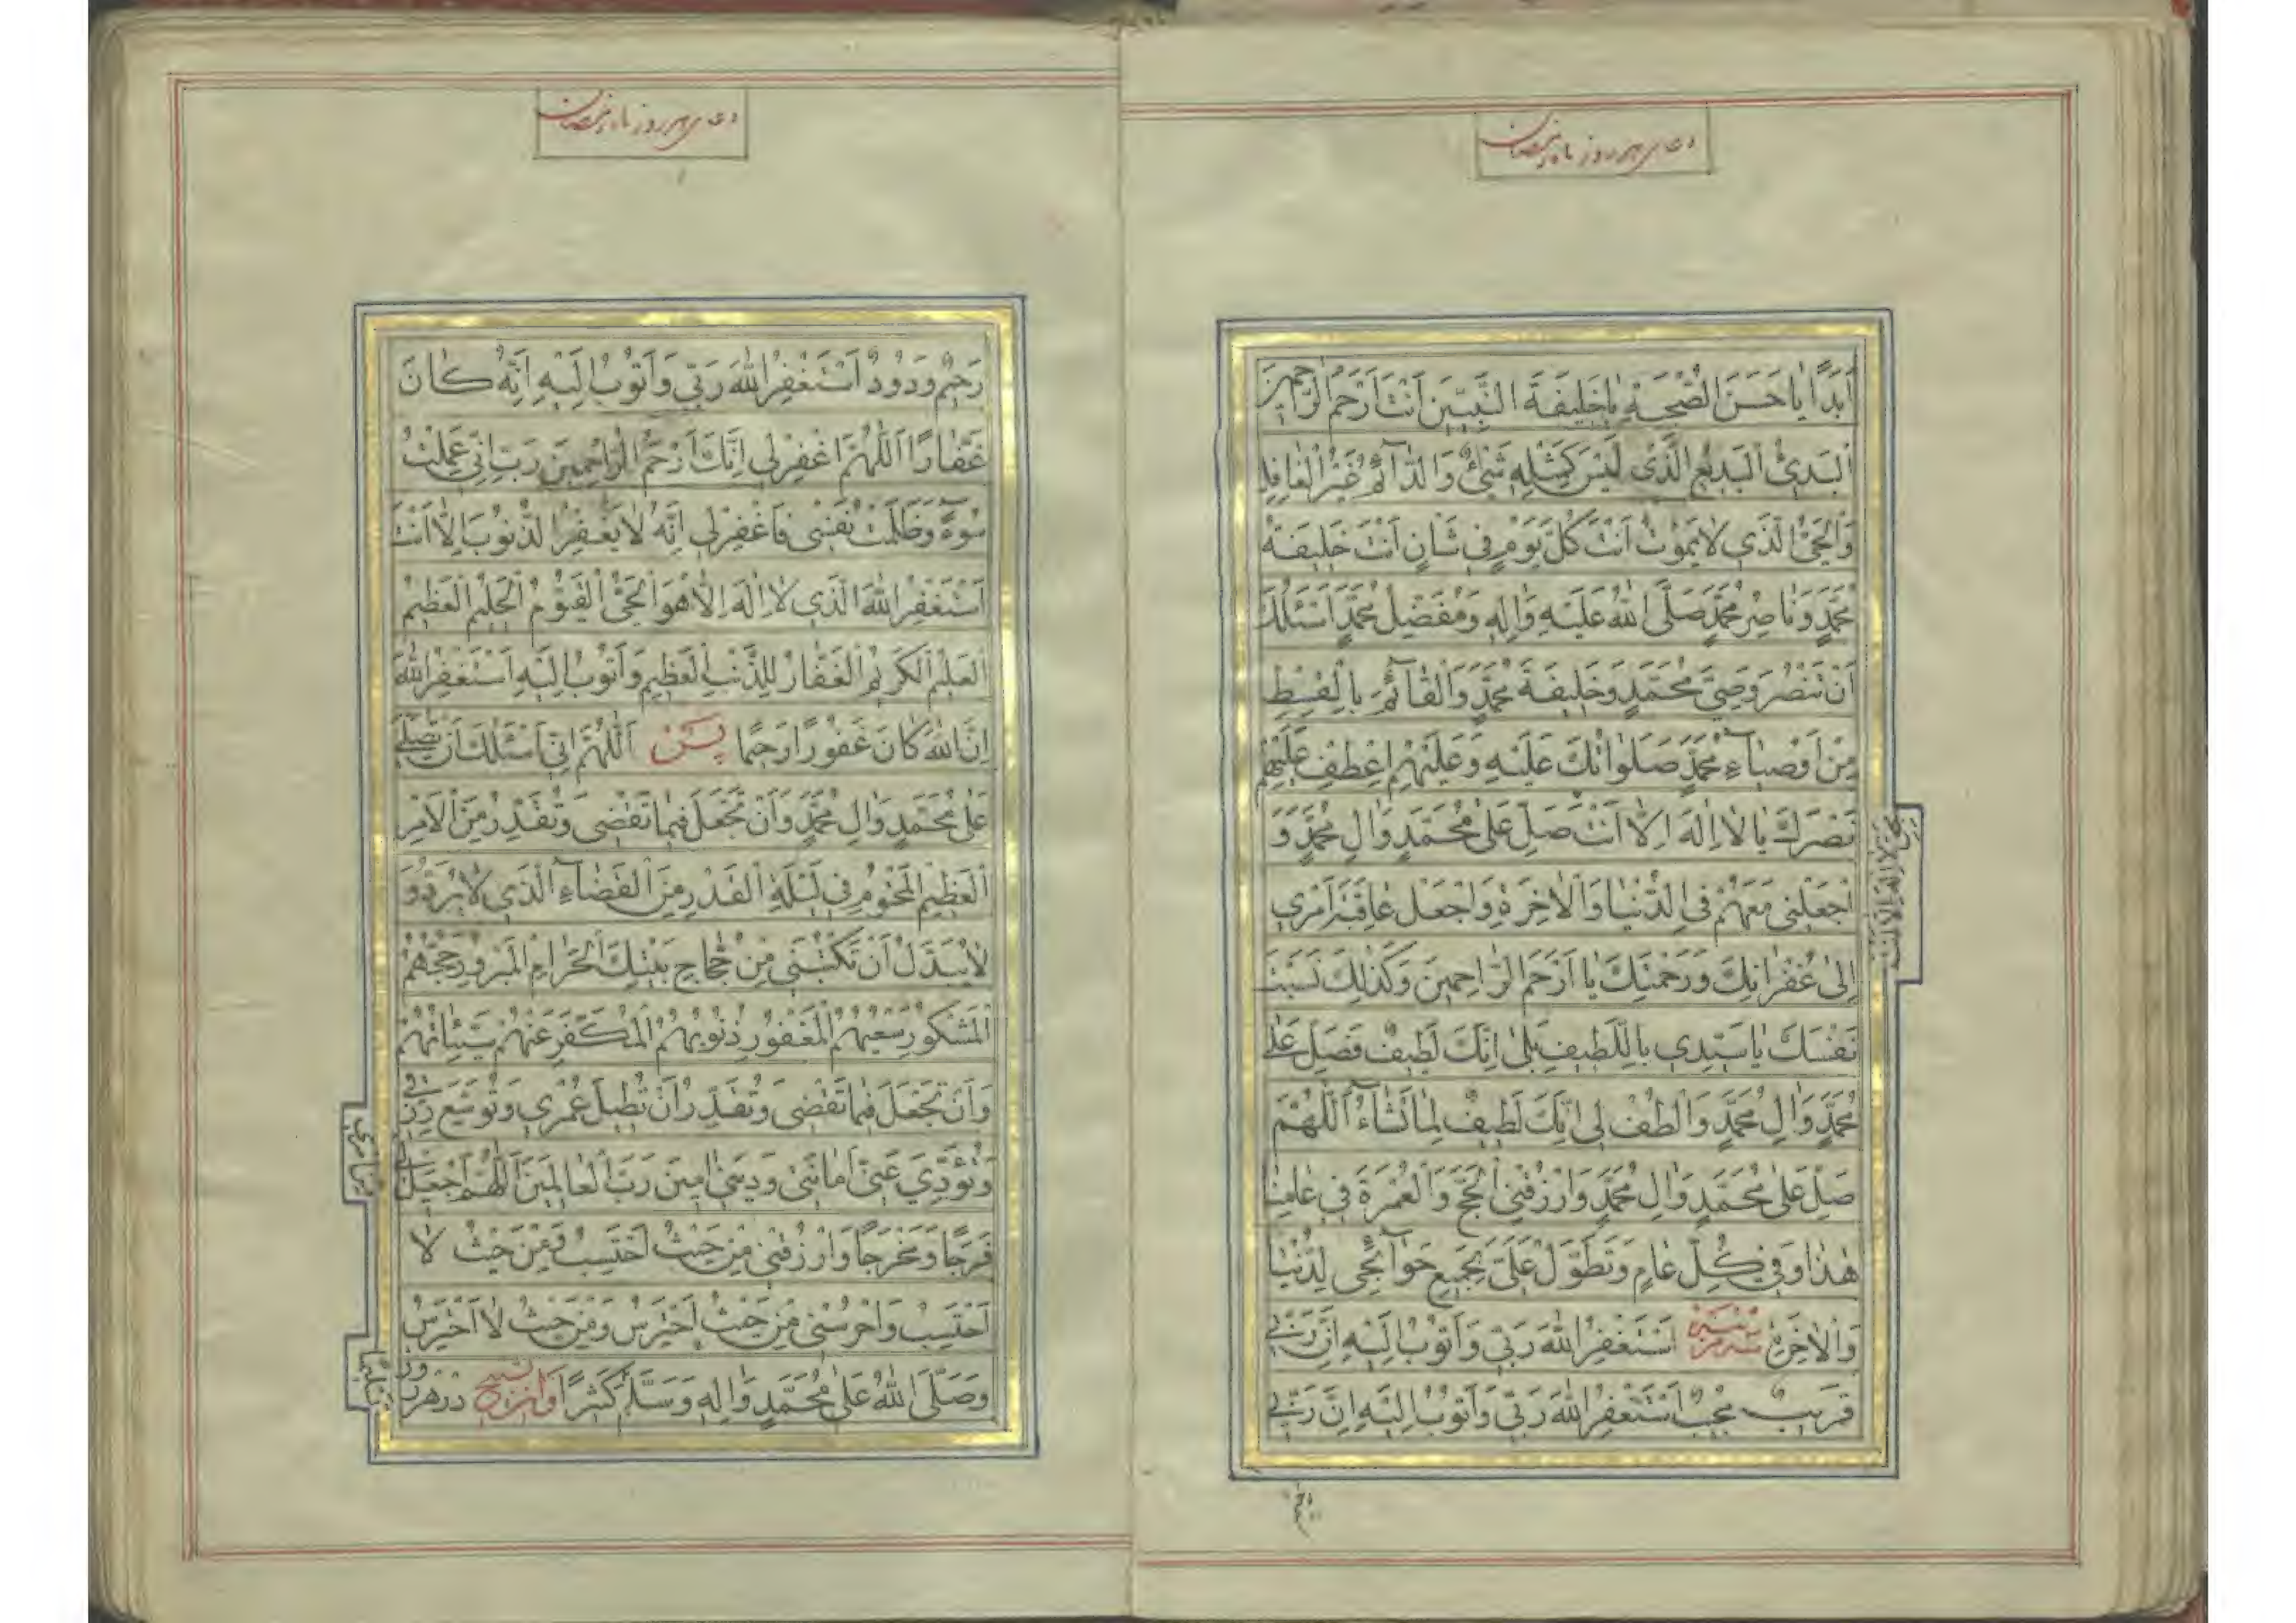 دعای هر روز ماه رمضان
أَبَدًا يَا حَسَنَ الصُّحْبَةِ يَا خَلِيفَةَ النَّبِيِّينَ أَنْتَ أَرْحَمُ الرَّاحِمِينَ
اَلْبَدِئُ الْبَدِيعُ الَّذِي لَيْسَ كَمِثْلِهِ شَيْءٌ وَالدَّآئِمُ غَيْرُ الْغَافِلِ
وَالْحَيُّ الَّذِي لَا يَمُوتُ أَنْتَ كُلَّ يَوْمٍ فِي شَأْنٍ أَنْتَ خَلِيفَةُ
مُحَمَّدٍ وَنَاصِرُ مُحَمَّدٍ صَلَّى اللهُ عَلَيْهِ وَالِهِ وَمُفَضِّلُ مُحَمَّدٍ أَسْئَلُكَ
أَنْ تَنْصُرَ وَصِيَّ مُحَمَّدٍ وَخَلِيفَةَ مُحَمَّدٍ وَالْقَآئِمَ بِالْقِسْطِ
مِنْ أَوْصِيَآءِ مُحَمَّدٍ صَلَوَاتُكَ عَلَيْهِ وَعَلَيْهِمْ اِعْطِفْ عَلَيْهِمْ
نَصْرَكَ يَا لَا اِلَهَ اِلَّا أَنْتَ صَلِّ عَلَى مُحَمَّدٍ وَالِ مُحَمَّدٍ وَ
اجْعَلْنِي مَعَهُمْ فِي الدُّنْيَا وَالْآخِرَةِ وَاجْعَلْ عَاقِبَةَ أَمْرِي
اِلَى غُفْرَانِكَ وَرَحْمَتِكَ يَا أَرْحَمَ الرَّاحِمِينَ وَكَذَلِكَ نَسَبْتَ
نَفْسَكَ يَا سَيِّدِي بِاللَّطِيفِ بَلَى اِنَّكَ لَطِيفٌ فَصَلِّ عَلَى
مُحَمَّدٍ وَالِ مُحَمَّدٍ وَالْطُفْ لِي اِنَّكَ لَطِيفٌ لِمَا تَشَآءُ اَللَّهُمَّ
صَلِّ عَلَى مُحَمَّدٍ وَالِ مُحَمَّدٍ وَارْزُقْنِي الْحَجَّ وَالْعُمْرَةَ فِي عَامِنَا
هَذَا وَفِي كُلِّ عَامٍ وَتَطَوَّلْ عَلَيَّ بِجَمِيعِ حَوَآئِجِي لِلدُّنْيَا
وَالْآخِرَةِ أَسْتَغْفِرُ اللهَ رَبِّي وَأَتُوبُ اِلَيْهِ اِنَّ رَبِّي
قَرِيبٌ مُجِيبٌ أَسْتَغْفِرُ اللهَ رَبِّي وَأَتُوبُ اِلَيْهِ اِنَّ رَبِّي
رحیم
دعای هر روز ماه رمضان
رَحِيمٌ وَدُودٌ أَسْتَغْفِرُ اللهَ رَبِّي وَأَتُوبُ اِلَيْهِ اِنَّهُ كَانَ
غَفَّارًا اَللَّهُمَّ اغْفِرْ لِي اِنَّكَ أَرْحَمُ الرَّاحِمِينَ رَبِّ اِنِّي عَمِلْتُ
سُوءً وَظَلَمْتُ نَفْسِي فَاغْفِرْ لِي اِنَّهُ لَا يَغْفِرُ الذُّنُوبَ اِلَّا أَنْتَ
أَسْتَغْفِرُ اللهَ الَّذِي لَا اِلَهَ اِلَّا هُوَ الْحَيُّ الْقَيُّومُ الْحَلِيمُ الْعَظِيمُ
الْعَلِيمُ الْكَرِيمُ الْغَفَّارُ لِلذَّنْبِ الْعَظِيمِ وَأَتُوبُ اِلَيْهِ أَسْتَغْفِرُ اللهَ
اِنَّ اللهَ كَانَ غَفُورًا رَحِيمًا پس اَللَّهُمَّ اِنِّي أَسْئَلُكَ أَنْ تُصَلِّيَ
عَلَى مُحَمَّدٍ وَالِ مُحَمَّدٍ وَأَنْ تَجْعَلَ فِيمَا تَقْضِي وَتُقَدِّرُ مِنَ الْأَمْرِ
الْعَظِيمِ الْمَحْتُومِ فِي لَيْلَةِ الْقَدْرِ مِنَ الْقَضَآءِ الَّذِي لَا يُرَدُّ وَ
لَا يُبَدَّلُ أَنْ تَكْتُبَنِي مِنْ حُجَّاجِ بَيْتِكَ الْحَرَامِ الْمَبْرُورِ حَجُّهُمْ
الْمَشْكُورِ سَعْيُهُمْ الْمَغْفُورِ ذُنُوبُهُمُ الْمُكَفَّرِ عَنْهُمْ سَيِّئَاتُهُمْ
وَأَنْ تَجْعَلَ فِيمَا تَقْضِي وَتُقَدِّرُ أَنْ تُطِيلَ عُمْرِي وَتُوَسِّعَ رِزْقِي
وَتُؤَدِّيَ عَنِّي أَمَانَتِي وَدَيْنِي امِينَ رَبَّ الْعَالَمِينَ اَللَّهُمَّ اجْعَلْ لِي
مِنْ أَمْرِي
فَرَجًا وَمَخْرَجًا وَارْزُقْنِي مِنْ حَيْثُ أَحْتَسِبُ وَمِنْ حَيْثُ لَا
أَحْتَسِبُ وَاحْرُسْنِي مِنْ حَيْثُ أَحْتَرِسُ وَمِنْ حَيْثُ لَا أَحْتَرِسُ
وَصَلَّى اللهُ عَلَى مُحَمَّدٍ وَالِهِ وَسَلَّمَ كَثِيرًا در هر روز